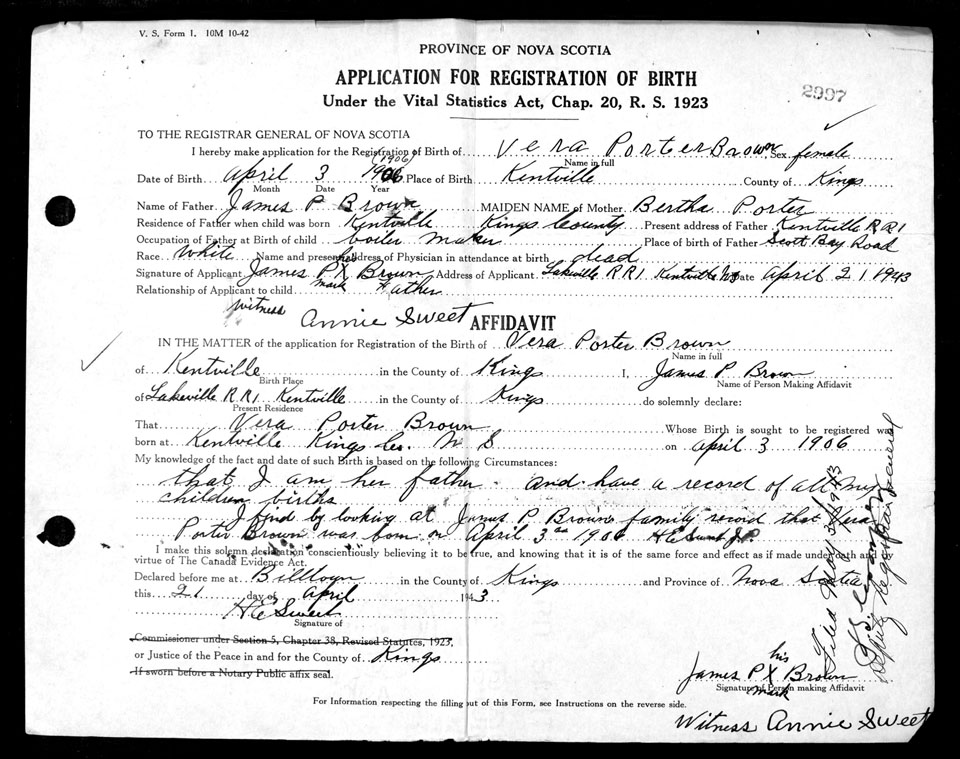 V. S. Form 1. 10M 10-42
PROVINCE OF NOVA SCOTIA
APPLICATION FOR REGISTRATION OF BIRTH
2997
Under the Vital Statistics Act, Chap. 20, R. S. 1923
TO THE REGISTRAR GENERAL OF NOVA SCOTIA
I hereby make application for the Registration of Birth of Vera Porter Brown Sex female
(1906) Name in full
Date of Birth April 3 1906 Place of Birth Kentville County of Kings
Month Date Year
Name of Father James P Brown MAIDEN NAME of Mother Bertha Porter
Residence of Father when child was born Kentville Kings County Present address of Father Kentville R R 1
Occupation of Father at Birth of child boiler maker Place of Birth of Father Scott Bay Road
Race White Name and address of Physician in attendance at birth dead
Signature of Applicant James P his X mark Brown Address of Applicant Lakeville R R 1 Kentville NS Date April 21 1943
Relationship of Applicant to child Father
witness Annie Sweet
AFFIDAVIT
IN THE MATTER of the application for Registration of the Birth of Vera Porter Brown
Name in full
of Kentville in the County of Kings I, James P Brown
Birth Place Name of Person Making Affidavit
of Lakeville R R 1 Kentville in the County of Kings do solemnly declare:
Present Residence
That Vera Porter Brown Whose Birth is sought to be registered was
born at Kentville Kings Co. N S on April 3 1906
My knowledge of the fact and date of such Birth is based on the following Circumstances:
that I am her father. And have a record of all my
children births
I find by looking at James P Browns family record that Vera
Porter Brown was born on April 3rd 1906 H E Sweet J.P.
I make this solemn declaration conscienciously believing it to be true, and knowing that it is of the same force and effect as if made under oath and by
virtue of The Canada Evidence Act.
Declared before me at Billtown in the County of Kings and Province of Nova Scotia
this 21 day of April 1943
H E Sweet
Signature of
Commissioner under Section 5, Chapter 38, Revised Statutes, 1923,
or Justice of the Peace in and for the County of Kings
If sworn before a Notary Public affix seal.
James P his X mark Brown
Signature of Person making Affidavit
For Information respecting the filling out of this Form, see Instructions on the reverse side.
Witness Annie Sweet
Filed May 1943
Deputy Registrar General